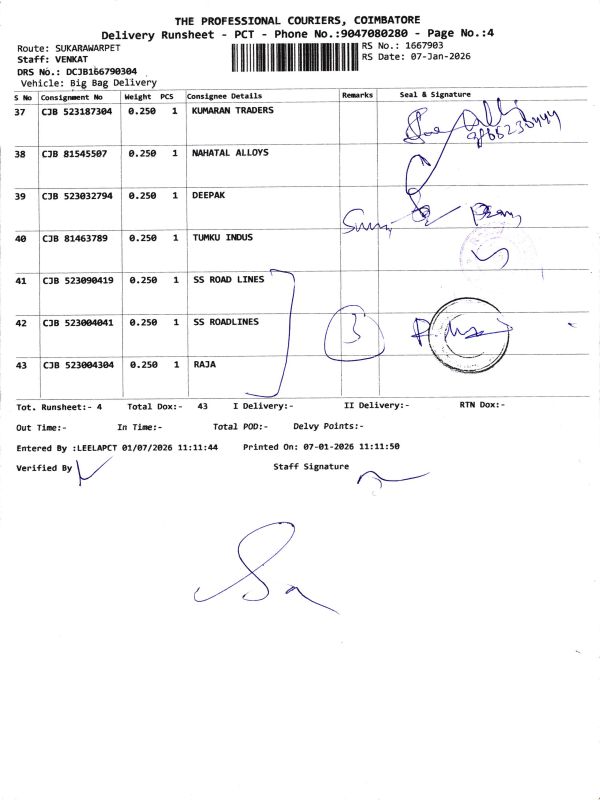 THE PROFESSIONAL COURIERS, COIMBATORE
Delivery Runsheet - PCT - Phone No.:9047080280 - Page No.:4
Route: SUKARAWARPET
RS No.: 1667903
Staff: VENKAT
RS Date: 07-Jan-2026
DRS No.: DCJB166790304
Vehicle: Big Bag Delivery
S No Consignment No Weight PCS Consignee Details Remarks Seal & Signature
37 CJB 523187304 0.250 1 KUMARAN TRADERS
38 CJB 81545507 0.250 1 NAHATAL ALLOYS
39 CJB 523032794 0.250 1 DEEPAK
40 CJB 81463789 0.250 1 TUMKU INDUS
41 CJB 523090419 0.250 1 SS ROAD LINES
42 CJB 523004041 0.250 1 SS ROADLINES 3
43 CJB 523004304 0.250 1 RAJA
Tot. Runsheet:- 4 Total Dox:- 43 I Delivery:- II Delivery:- RTN Dox:-
Out Time:- In Time:- Total POD:- Delvy Points:-
Entered By :LEELAPCT 01/07/2026 11:11:44 Printed On: 07-01-2026 11:11:50
Verified By Staff Signature